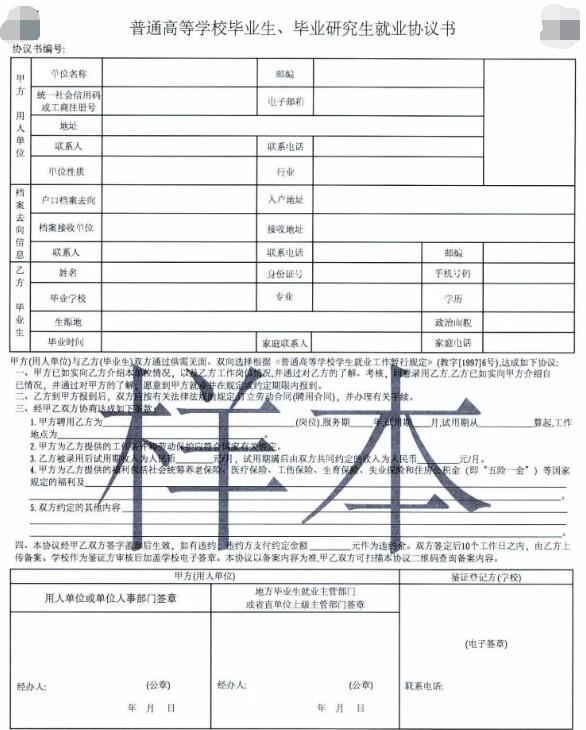 普通高等学校毕业生、毕业研究生就业协议书
协议书编号:
甲方 用人单位
单位名称 邮编
统一社会信用码或工商注册号 电子邮箱
地址
联系人 联系电话
单位性质 行业
档案去向信息
户口档案去向 入户地址
档案接收单位 接收地址
联系人 联系电话 邮编
乙方 毕业生
姓名 身份证号 手机号码
毕业学校 专业 学历
生源地 政治面貌
毕业时间 家庭联系人 家庭电话
甲方(用人单位)与乙方(毕业生)双方通过供需见面、双向选择根据《普通高等学校学生就业工作暂行规定》(教字[1997]6号),达成如下协议:
一、甲方已如实向乙方介绍本单位情况,以及乙方工作岗位情况,并通过对乙方的了解、考核,同意录用乙方,乙方已如实向甲方介绍自
己情况,并通过对甲方的了解,愿意到甲方就业并在规定或约定期限内报到。
二、乙方到甲方报到后,双方应按有关法律法规的规定订立劳动合同(聘用合同),并办理有关手续。
三、经甲乙双方协商达成如下条款:
1.甲方聘用乙方为 (岗位),服务期 年,试用期 月,试用期从 算起,工作
地点为
2.甲方为乙方提供的工作条件和劳动保护应符合国家有关规定。
3.乙方被录用后试用期收入为人民币 元/月, 试用期满后由双方共同约定的收入为人民币 元/月。
4.甲方为乙方提供的福利包括社会统筹养老保险、医疗保险、工伤保险、生育保险、失业保险和住房公积金(即“五险一金”)等国家
规定的福利及
5.双方约定的其他内容
四、本协议经甲乙双方签字盖章后生效,如有违约,违约方支付约定金额 元作为违约金。双方签定后10个工作日之内,由乙方上
传备案。学校作为鉴证方审核后加盖学校电子签章。本协议以备案内容为准,甲乙双方可扫描本协议二维码查询备案内容。
样本
甲方(用人单位) 鉴证登记方(学校)
用人单位或单位人事部门签章
地方毕业生就业主管部门
或省直单位上级主管部门签章
(电子签章)
经办人: (公章) 经办人: (公章) 联系电话:
年 月 日 年 月 日